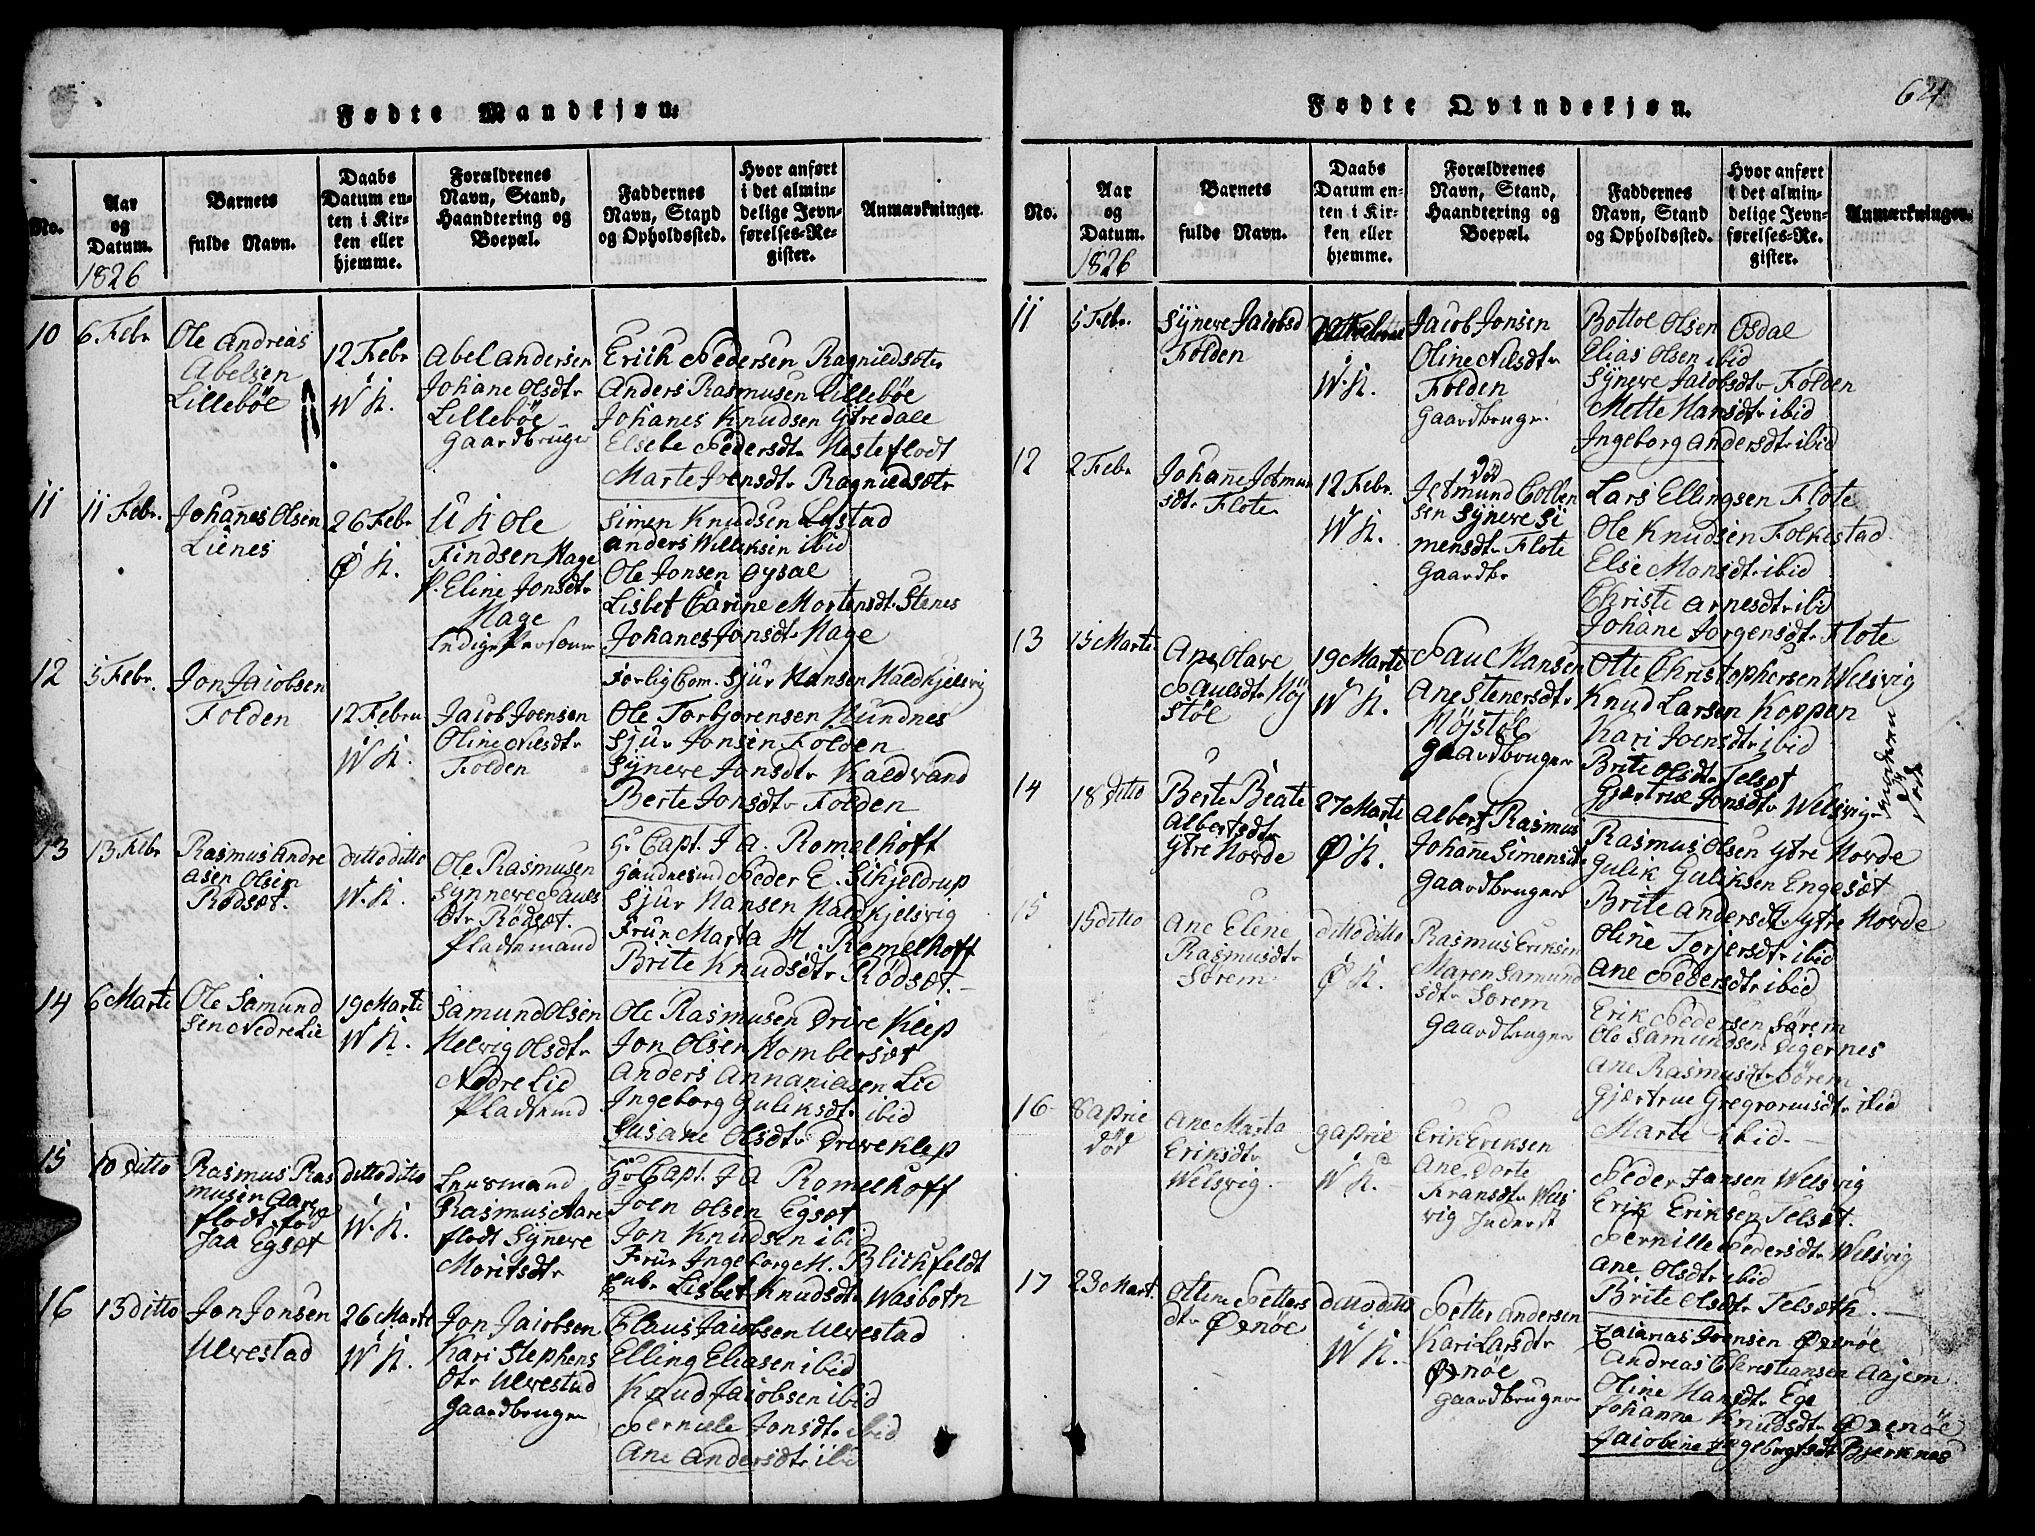 Fødte Mandkjøn.
No.
Aar
og
Datum.
1826
Barnets
fulde Navn.
Daabs
Datum en-
ten i Kir-
ken eller
hjemme.
Forældrenes
Navn, Stand,
Haandtering og
Boepæl.
Faddernes
Navn, Stand
og Opholdssted.
Hvor anført
i det almin-
delige Jevn-
førelses-Re-
gister.
Anmærkninger.
10
6 Febr
Ole Andreas
Abelsen
Lillebøe
12 Febr
W K.
Abel Andersen
Johane Olsdtr
Lillebøe
Gaardbruger
Erich Pedersen Ragnildsetr
Anders Rasmusen Lillebøe
Johanes Knudsen Ytredale
Elsebe Pedersdtr Nesteflodt
Marte Joensdtr Ragnildsetr
11
11 Febr.
Johannes Olsen
Lienes
26 Febr
Ø K.
U K Ole
Findsen Hage
P. Eline Jonsdtr
Hage
Ledige Personer
Simen Knudsen Lystad
Anders Willeksen ibid
Ole Jonsen Oysal
Lisbet Carine Mortensdtr Stenes
Johanes Jonsdtr Hage
12
5 Febr.
Jon Jacobsen
Folden
12 Febru
W K.
Jacob Joensen
Oline Nilsdtr
Folden
Forlig Com. Sjur Hansen Haldkjelsvig
Ole Torbjørensen Hundnes
Sjur Jonsen Folden
Synneve Jonsdtr Kaldvand
Berte Jonsdtr Folden
13
13 Febr
Rasmus Andre
asen Olsen
Rødset.
ditto ditto
W. K.
Ole Rasmusen
Synneve Pauls
dtr Rødset.
Pladsemand
Hr Capt. J A. Romelhoft
Peder E. Sikjeldrup
Sjur Hansen Haldkjelsvig
Frue Marta H. Romelhoff
Brite Knudsdtr Rødset.
14
6 Marti
Ole Samund
sen Nedre Lie
19 Marti
W K.
Samund Olsen
Helvig Olsdtr
Nedre Lid
Pladsmd
Ole Rasmusen Drive Klep
Jon Olsen Homberset
Anders Annaniasen Lid
Ingeborg Guliksdtr ibid
Susane Olsdtr Driveklep
15
10 ditto
Rasmus Ras
musen Aare
flodt, fød
Paa Egset
ditto ditto
W. K.
Lensmand
Rasmus Aare
flodt Synneve
Moritsdtr
Hr Capt. J A Romelhoff
Joen Olsen Egset
Jon Knudsen ibid
Frue Ingeborg M. Blichfeldt
Lisbet Knudsdtr Wasbotn
16
13 ditto
Jon Jonsen
Ulvestad
26 Marti
W K.
Jon Jacobsen
Kari Stephens
dtr Ulvestad
Gaardbruger
Claus Jacobsen Ulvestad
Elling Eliasen ibid
Knud Jacobsen ibid
Pernille Jonsdtr ibid
Ane Andersdtr ibid
64
Fødte Qvindekjøn.
No.
Aar
og
Datum.
1826
Barnets
fulde Navn.
Daabs
Datum en-
ten i Kir-
ken eller
hjemme.
Forældrenes
Navn, Stand,
Haandtering og
Boepæl.
Faddernes
Navn, Stand
og Opholdssted.
Hvor anført
i det almin-
delige Jevn-
førelses-Re-
gister.
Anmærkninger.
11
5 Febr.
Synneve Jacobsd
Folden
W. K.
Jacob Jonsen
Oline Nilsdtr
Folden
Gaardbruger
Bottol Olsen Osdal
Elias Olsen ibid
Synneve Jacobsdtr Folden
Mette Hansdtr ibid
Ingeborg Andersdtr ibid
12
2 Febr
Johanne Jetmun
sdtr Flote
12 Febr.
W K.
død
Jetmund Colben
sen Synneve Si
mensdtr Flote
Gaardbr
Lars Ellingsen Flote
Ole Knudsen Folkestad
Else Monsdtr ibid
Christi Arnesdtr ibid
Johane Jorgensdtr Flote
13
15 Marti
Ane Olave
Paulsdtr Høy
støl
19 Marti
W K.
Paul Hansen
Ane Stenersdtr
Høystøl
Gaardbruger
Otte Christophersen Welsvig
Knud Larsen Koppen
Kari Joensdtr ibid
Brite Olsdtr Telset
Gjertrue Jonsdtr Welsvig
Moderen
død
14
18 ditto
Berte Beate
Albertsdtr
Ytre Hovde
27 Marti
Ø K.
Albert Rasmus
Johanne Simensdtr
Gaardbruger
Rasmus Olsen Ytre Hovde
Gulik Guliksen Engeset
Brite Andersdtr Ytre Hovde
Oline Torjersdtr ibid
Ane Pedersdtr ibid
15
15 ditto
Ane Eline
Rasmusdtr
Sørem
ditto ditto
Ø K.
Rasmus Eriksen
Maren Samund
sdtr Sorem
Gaardbruger
Erik Pedersen Sørem
Ole Samundsen Digernes
Ane Rasmusdtr Sørem
Gjertrue Gregroriusdtr ibid
Marte ibid
16
8 April
død
Ane Marta
Eriksdtr
Welsvig
9 April
W K.
Erik Eriksen
Ane Dorte
Fransdtr Wels
vig Inderst
Peder Jansen Welsvig
Erik Eriksen Telset.
Pernille Pedersdtr Welsvig
Ane Olsdtr ibid
Brite Olsdtr Telseth.
17
23 Mart.
Oline Petters
dtr Ørnøe
ditto ditto
W K.
Petter Andersen
Kari Larsdtr
Ørnøe
Gaardbruger
Zaianas Joensen Ørnøe
Andreas Christiansen Aajem
Oline Hansdtr Ege
Johanne Knudsdtr Ørnøe
Jacobine Ingebrgtsdtr Bjerknes